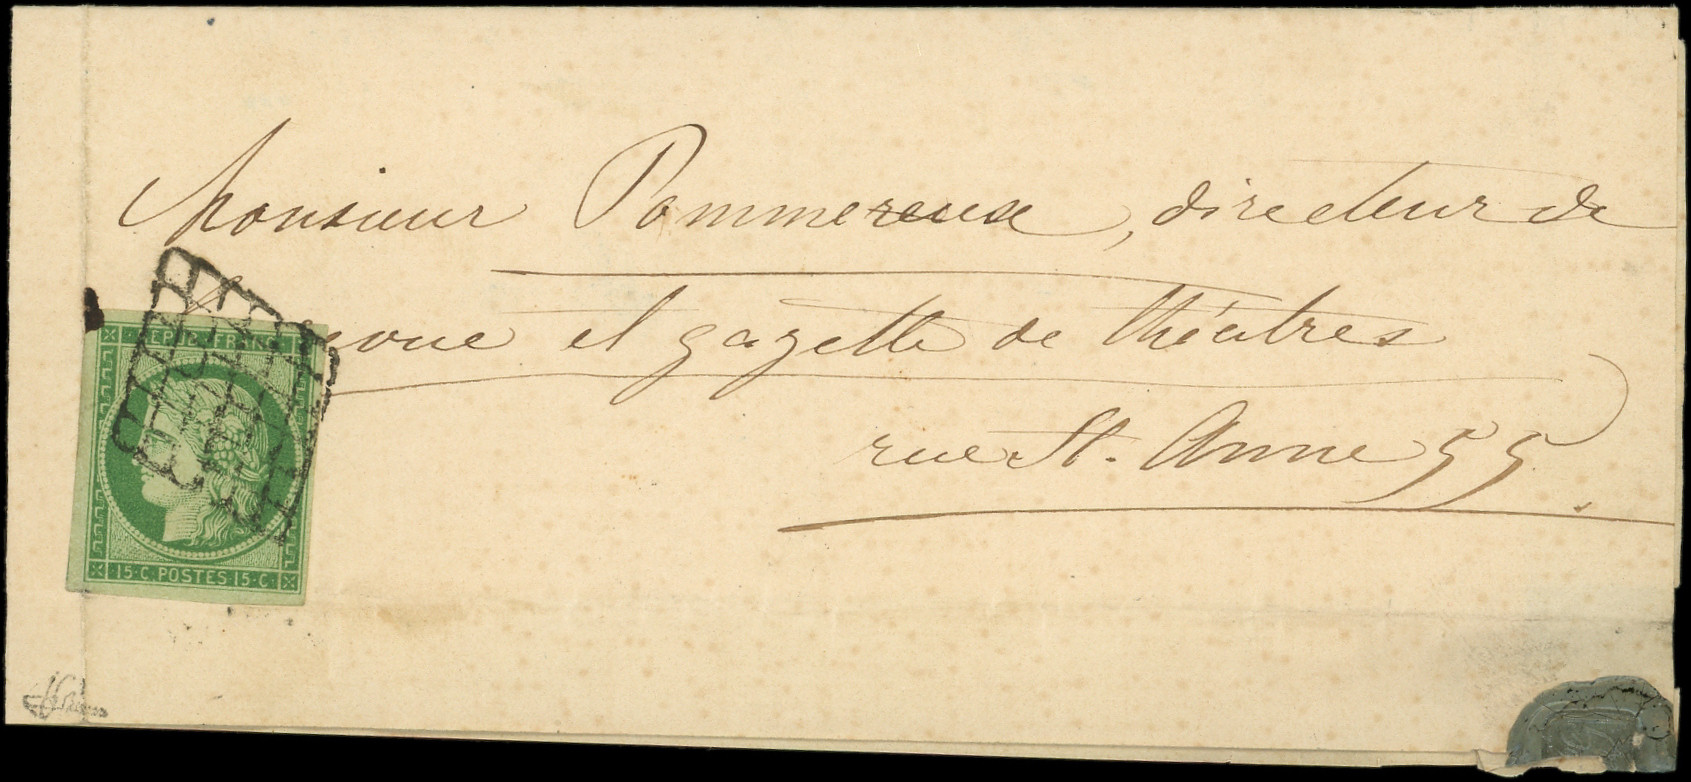 Monsieur Pommereux, directeur de
la revue et gazette de théâtres
rue St. Anne 55.
REPUB. FRANC.
15·C. POSTES 15·C.